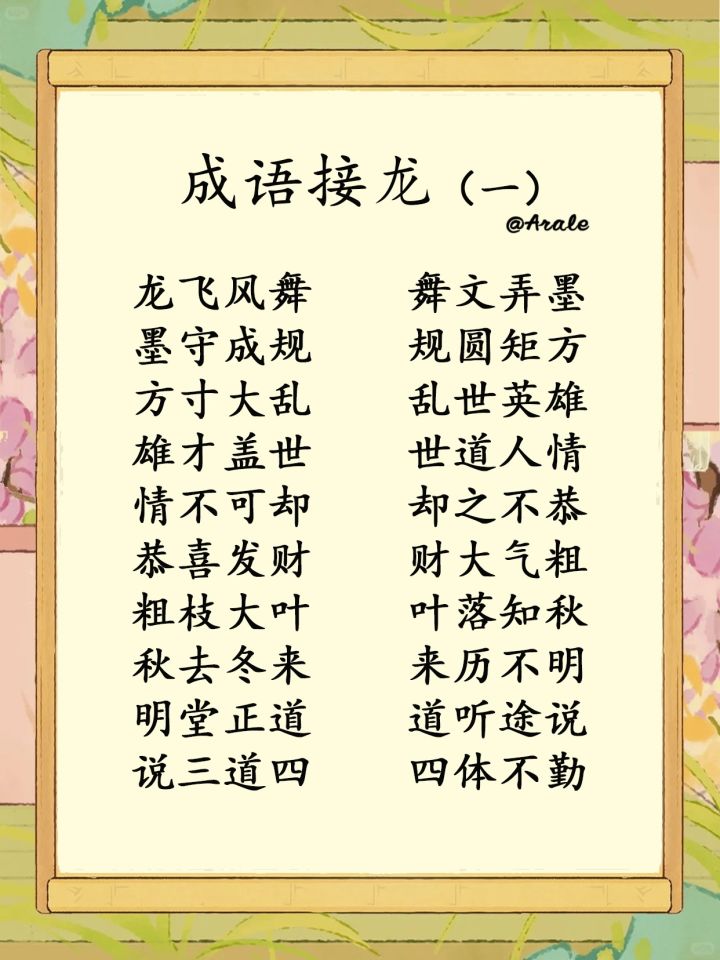 成语接龙（一）
@Arale
龙飞风舞 舞文弄墨
墨守成规 规圆矩方
方寸大乱 乱世英雄
雄才盖世 世道人情
情不可却 却之不恭
恭喜发财 财大气粗
粗枝大叶 叶落知秋
秋去冬来 来历不明
明堂正道 道听途说
说三道四 四体不勤